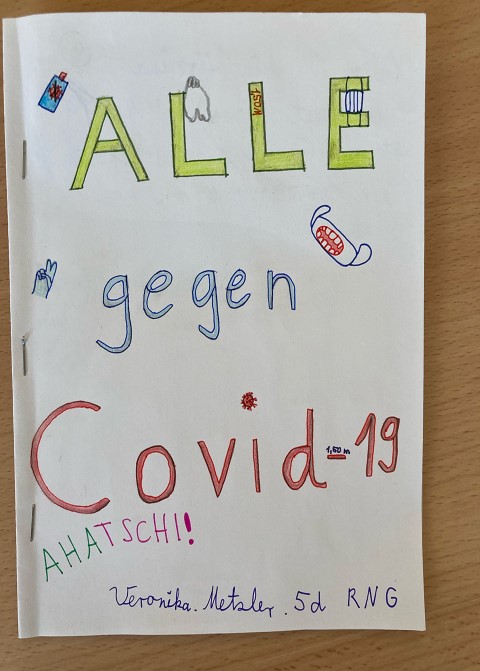 ALLE
gegen
Covid-19
1,50 m
AHATSCHI!
Veronika. Metzler. 5d RNG